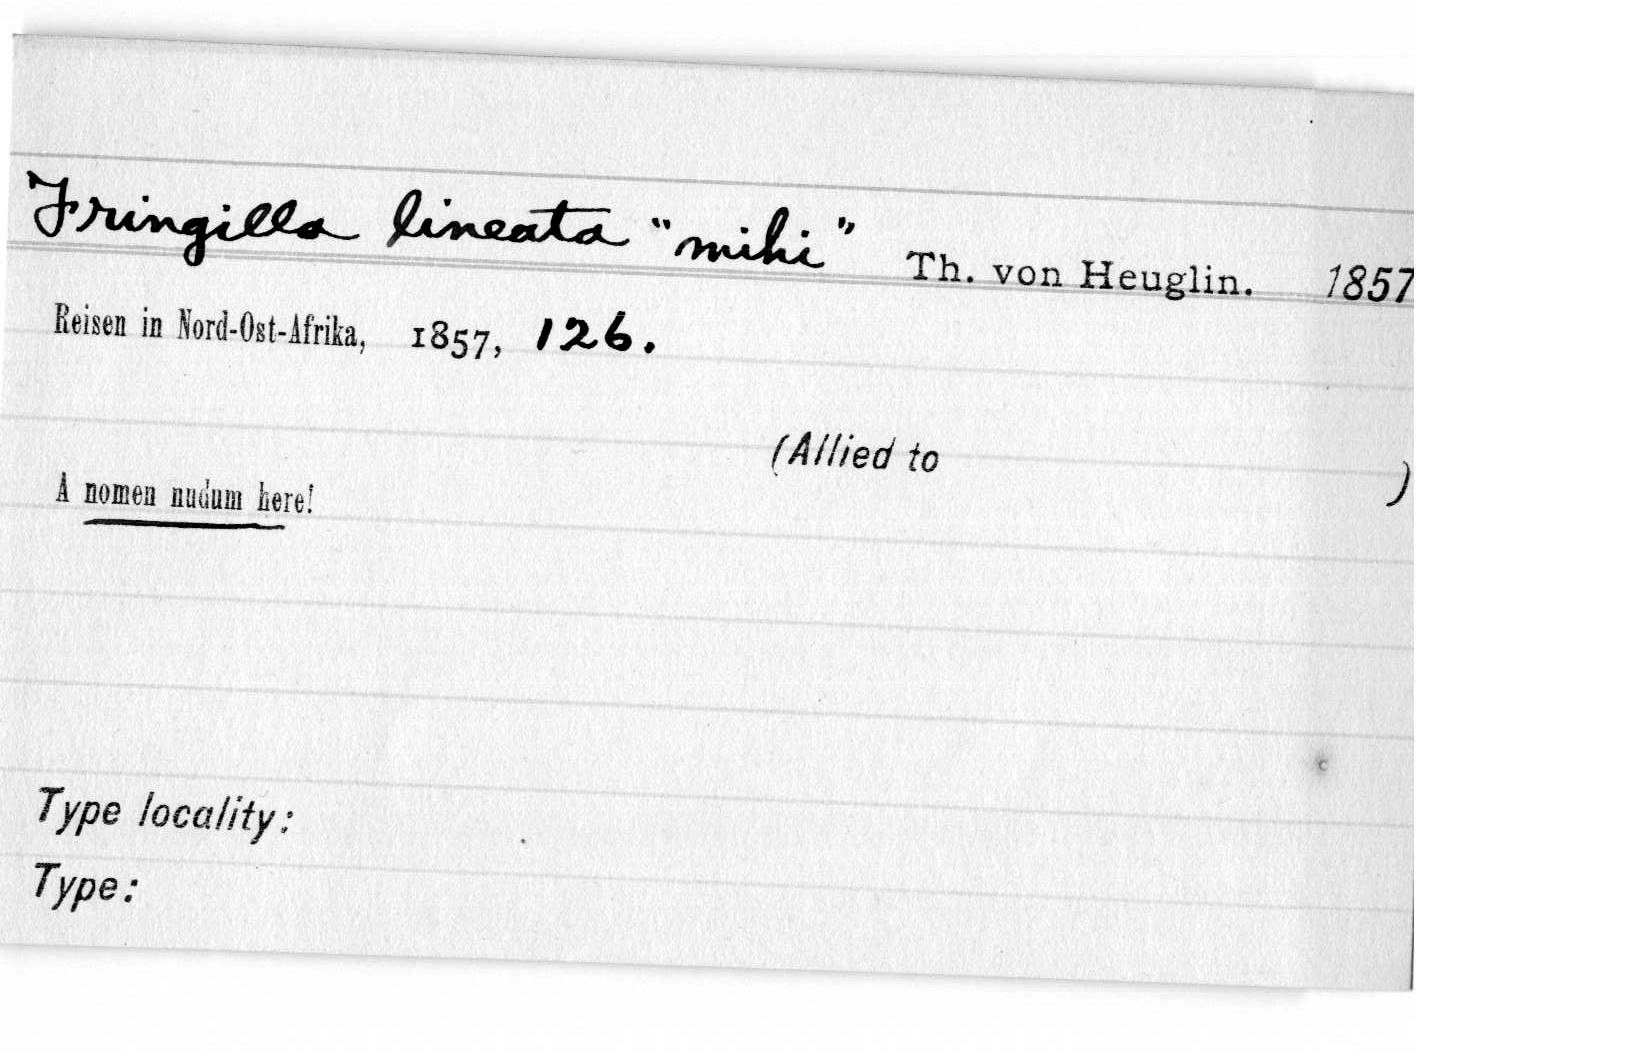 Fringilla lineata "mihi" Th. von Heuglin. 1857
Reisen in Nord-Ost-Afrika, 1857, 126.
(Allied to )
A nomen nudum here!
Type locality:
Type: